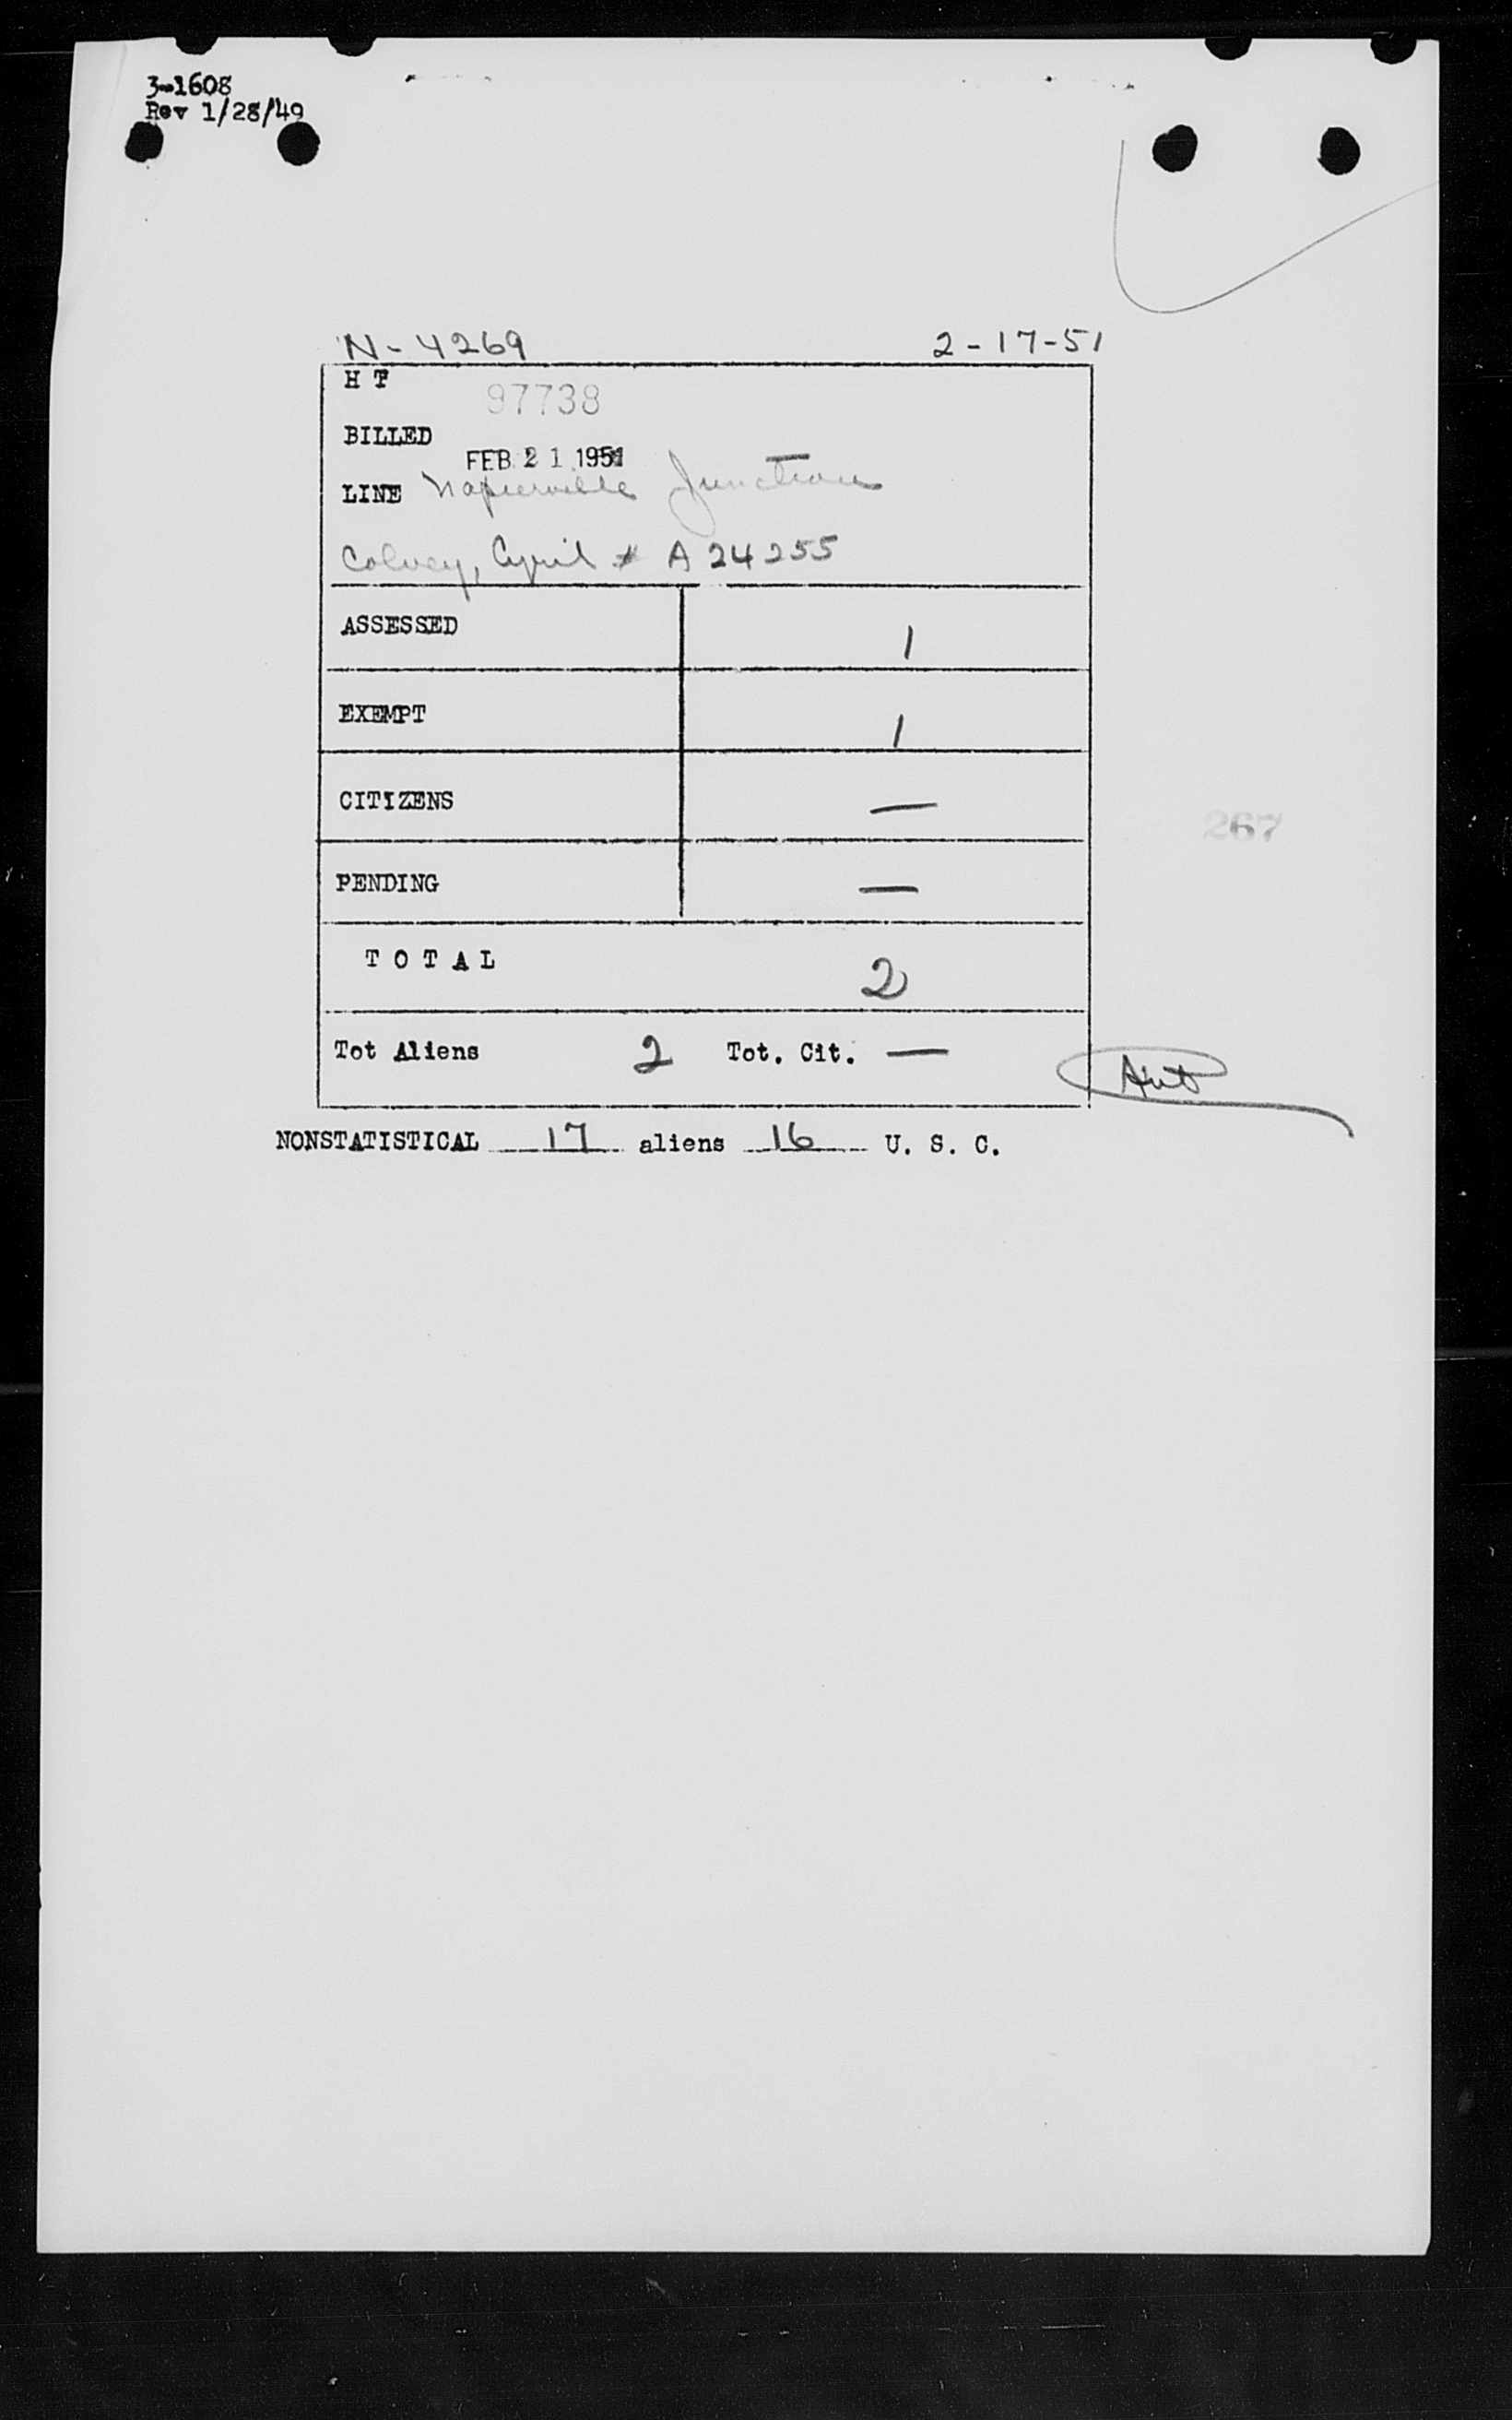 3-1608
Rev 1/28/49
N-4269 2-17-51
H T 97738
BILLED
FEB 21 1951
LINE Napierville Junction
Colvey, Cyril # A 24255
ASSESSED 1
EXEMPT 1
CITIZENS —
267
PENDING —
TOTAL 2
Tot Aliens 2 Tot. Cit. —
NONSTATISTICAL 17 aliens 16 U. S. C.